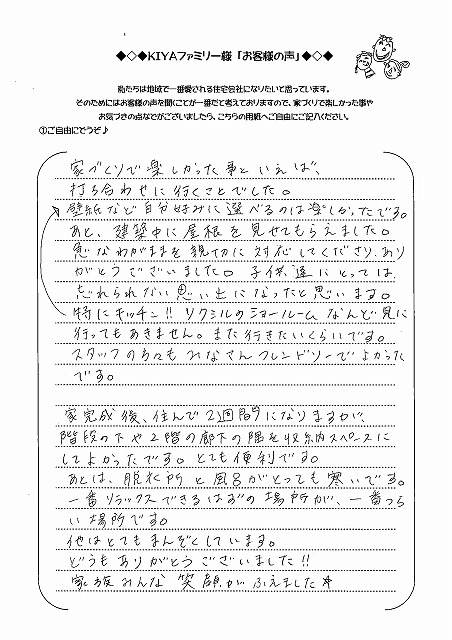 ◆◇◆KIYAファミリー様「お客様の声」◆◇◆
私たちは地域で一番愛される住宅会社になりたいと思っています。
そのためにはお客様の声を聞くことが一番だと考えておりますので、家づくりで楽しかった事や
お気づきの点などがございましたら、こちらの用紙へご自由にご記入ください。
①ご自由にどうぞ♪
家づくりで楽しかった事といえば、
打ち合わせに行くことでした。
壁紙など自分好みに選べるのは楽しかったです。
あと、建築中に屋根を見せてもらえました。
急なわがままを親切に対応してくださり、あり
がとうございました。子供達にとっては
忘れられない思い出になったと思います。
特にキッチン!!リクシルのショールームなんど見に
行ってもあきません。また行きたいくらいです。
スタッフの方々もみなさんフレンドリーでよかった
です。
家完成後、住んで2週間になりますが、
階段の下や2階の廊下の隅を収納スペースに
してよかったです。とても便利です。
あとは、脱衣所と風呂がとっても寒いです。
一番リラックスできるはずの場所が、一番つら
い場所です。
他はとてもまんぞくしています。
どうもありがとうございました!!
家族みんな笑顔がふえました☆